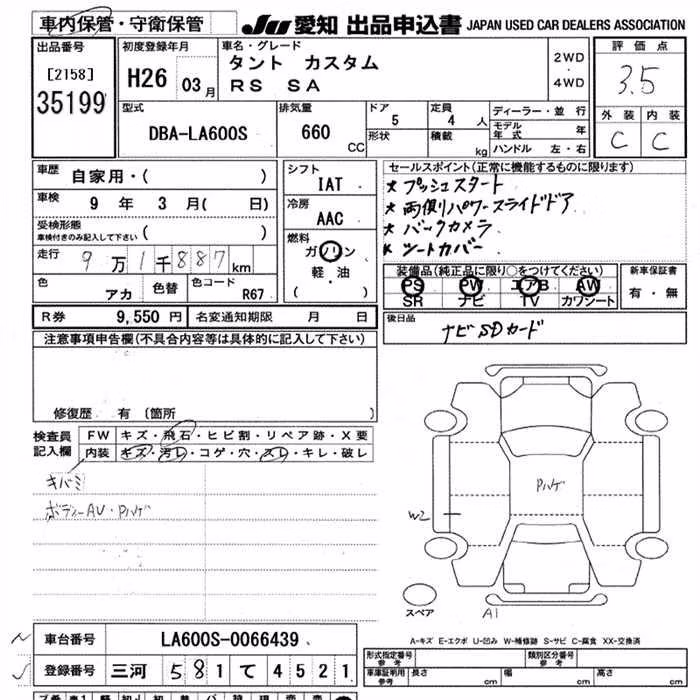 車内保管・守衛保管
JU 愛知 出品申込書 JAPAN USED CAR DEALERS ASSOCIATION
出品番号
[2158]
35199
初度登録年月
H26 03月
車名・グレード
タント カスタム
RS SA
2WD
・
4WD
評価点
3.5
外装 内装
C C
型式
DBA-LA600S
排気量
660 CC
ドア
5
形状
定員
4 人
積載
kg
ディーラー・並行
モデル年式 年
ハンドル 左・右
車歴
自家用・( )
車検
9 年 3 月( 日)
受検形態
車検付きのみ記入して下さい ( )
走行
9万1千887km
色
アカ
色替
色コード
R67
シフト
IAT
冷房
AAC
燃料
ガソリン
軽・油
( )
セールスポイント(正常に機能するものに限ります)
★プッシュスタート
★両側パワースライドドア
★バックカメラ
★シートカバー
装備品(純正品に限り○をつけてください)
PS PW エアB AW
SR ナビ TV カワシート
新車保証書
有・無
R券 9,550 円 名変通知期限 月 日
後日品
ナビSDカード
注意事項申告欄(不具合内容等は具体的に記入して下さい)
修復歴 有 〔箇所 〕
検査員
記入欄
FW キズ・飛石・ヒビ割・リペア跡・X要
内装 キズ・汚レ・コゲ・穴・スレ・キレ・破レ
キバミ
ボディーAU・Pハゲ
Pハゲ
W2
スペア
A1
A-キズ E-エクボ U-凹み W-補修跡 S-サビ C-腐食 XX-交換済
車台番号 LA600S-0066439
登録番号 三河 581 て 4521
形式指定番号
参考
類別区分番号
参考
車庫証明用
参考
長さ cm 幅 cm 高さ cm